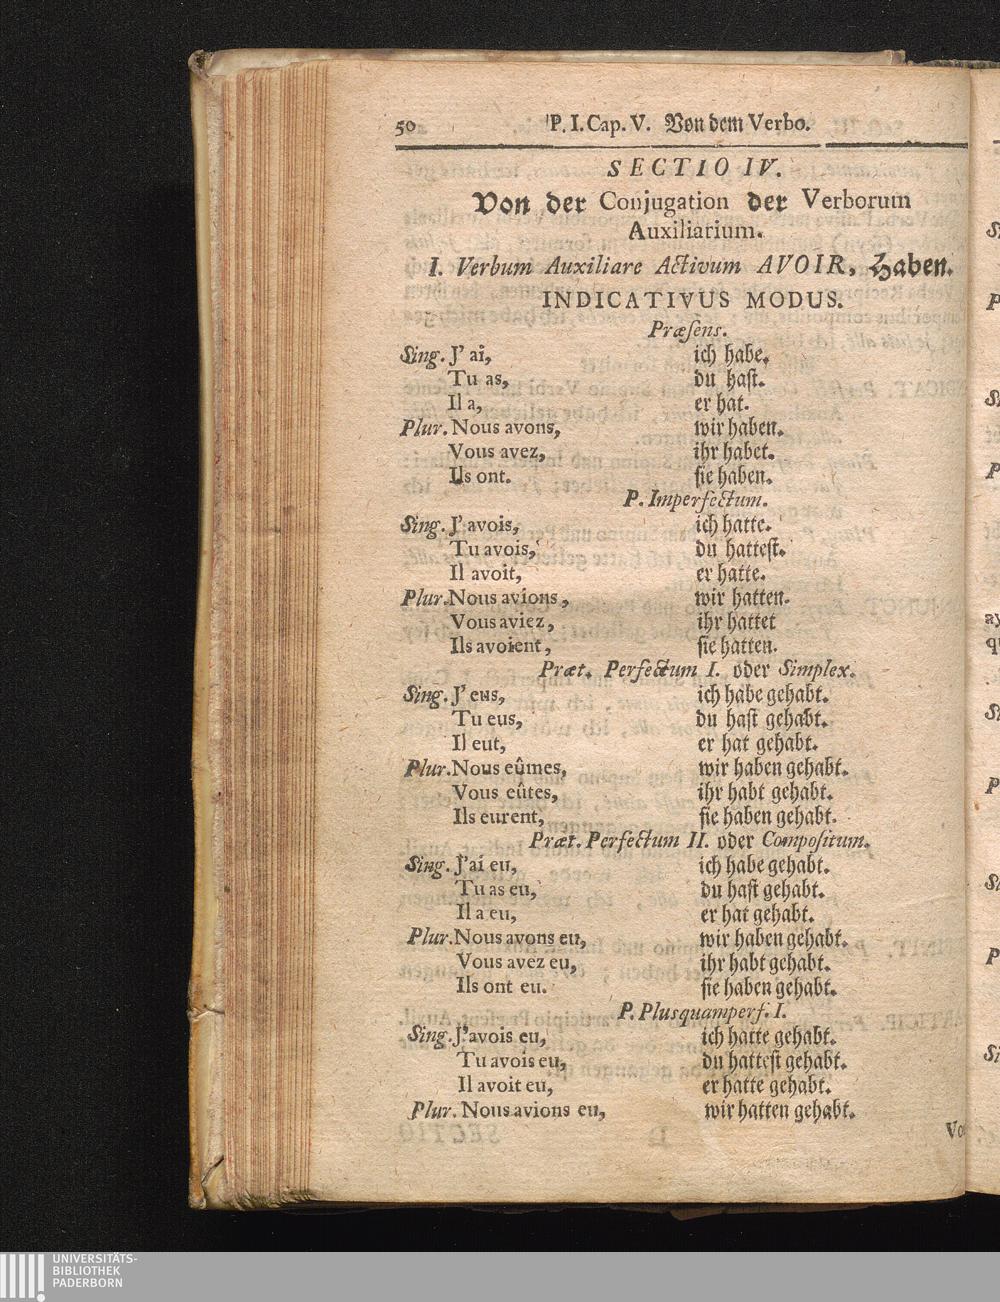 50 P. I. Cap. V. Von dem Verbo.
SECTIO IV.
Von der Conjugation der Verborum
Auxiliarium.
I. Verbum Auxiliare Activum AVOIR, Haben.
INDICATIVUS MODUS.
Præſens.
Sing. J' ai, ich habe.
Tu as, du haſt.
Il a, er hat.
Plur. Nous avons, wir haben.
Vous avez, ihr habet.
Ils ont. ſie haben.
P. Imperfectum.
Sing. J' avois, ich hatte.
Tu avois, du hatteſt.
Il avoit, er hatte.
Plur. Nous avions, wir hatten.
Vous aviez, ihr hattet
Ils avoient, ſie hatten.
Præt. Perfectum I. oder Simplex.
Sing. J' eus, ich habe gehabt.
Tu eus, du haſt gehabt.
Il eut, er hat gehabt.
Plur. Nous eûmes, wir haben gehabt.
Vous eûtes, ihr habt gehabt.
Ils eurent, ſie haben gehabt.
Præt. Perfectum II. oder Compoſitum.
Sing. J'ai eu, ich habe gehabt.
Tu as eu, du haſt gehabt.
Il a eu, er hat gehabt.
Plur. Nous avons eu, wir haben gehabt.
Vous avez eu, ihr habt gehabt.
Ils ont eu. ſie haben gehabt.
P. Plusquamperf. I.
Sing. J'avois eu, ich hatte gehabt.
Tu avois eu, du hatteſt gehabt.
Il avoit eu, er hatte gehabt.
Plur. Nous avions eu, wir hatten gehabt.
UNIVERSITÄTS-
BIBLIOTHEK
PADERBORN